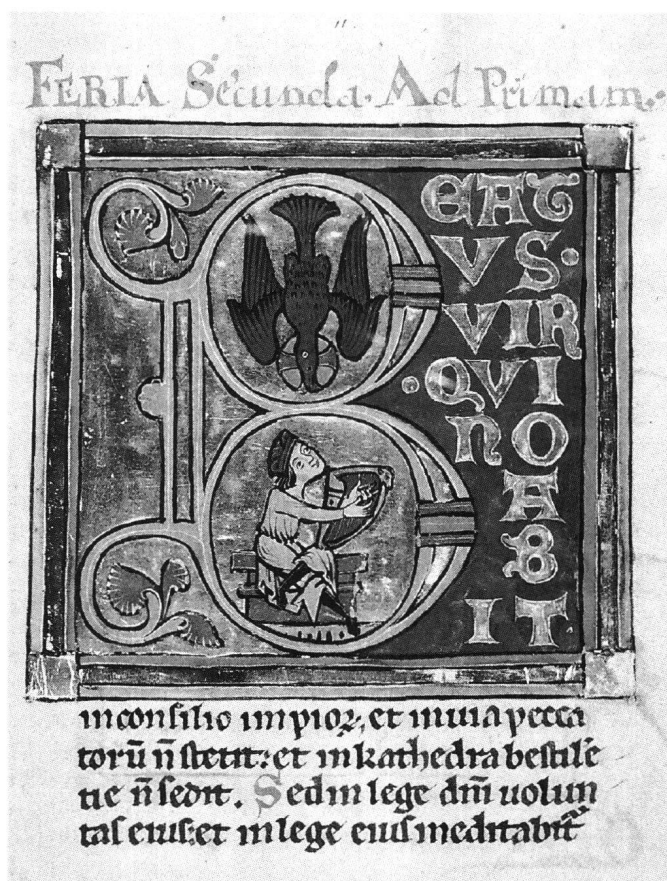 FERIA Secunda. Ad Primam.
B
EAT
VS.
VIR
QVI
NO
A
B
IT
inconsilio impioꝝ, et inuia pecca
torū n̄ stetit: et inkathedra bestilē
tie n̄ sedit. Sedin lege dn̄i uolun
tas eius: et in lege eius meditabit᷑